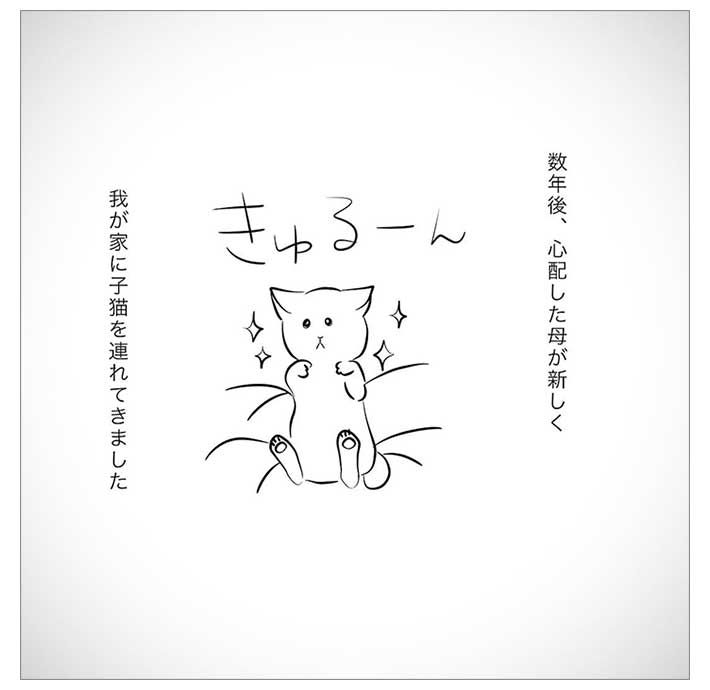 数年後、心配した母が新しく
きゅるーん
我が家に子猫を連れてきました